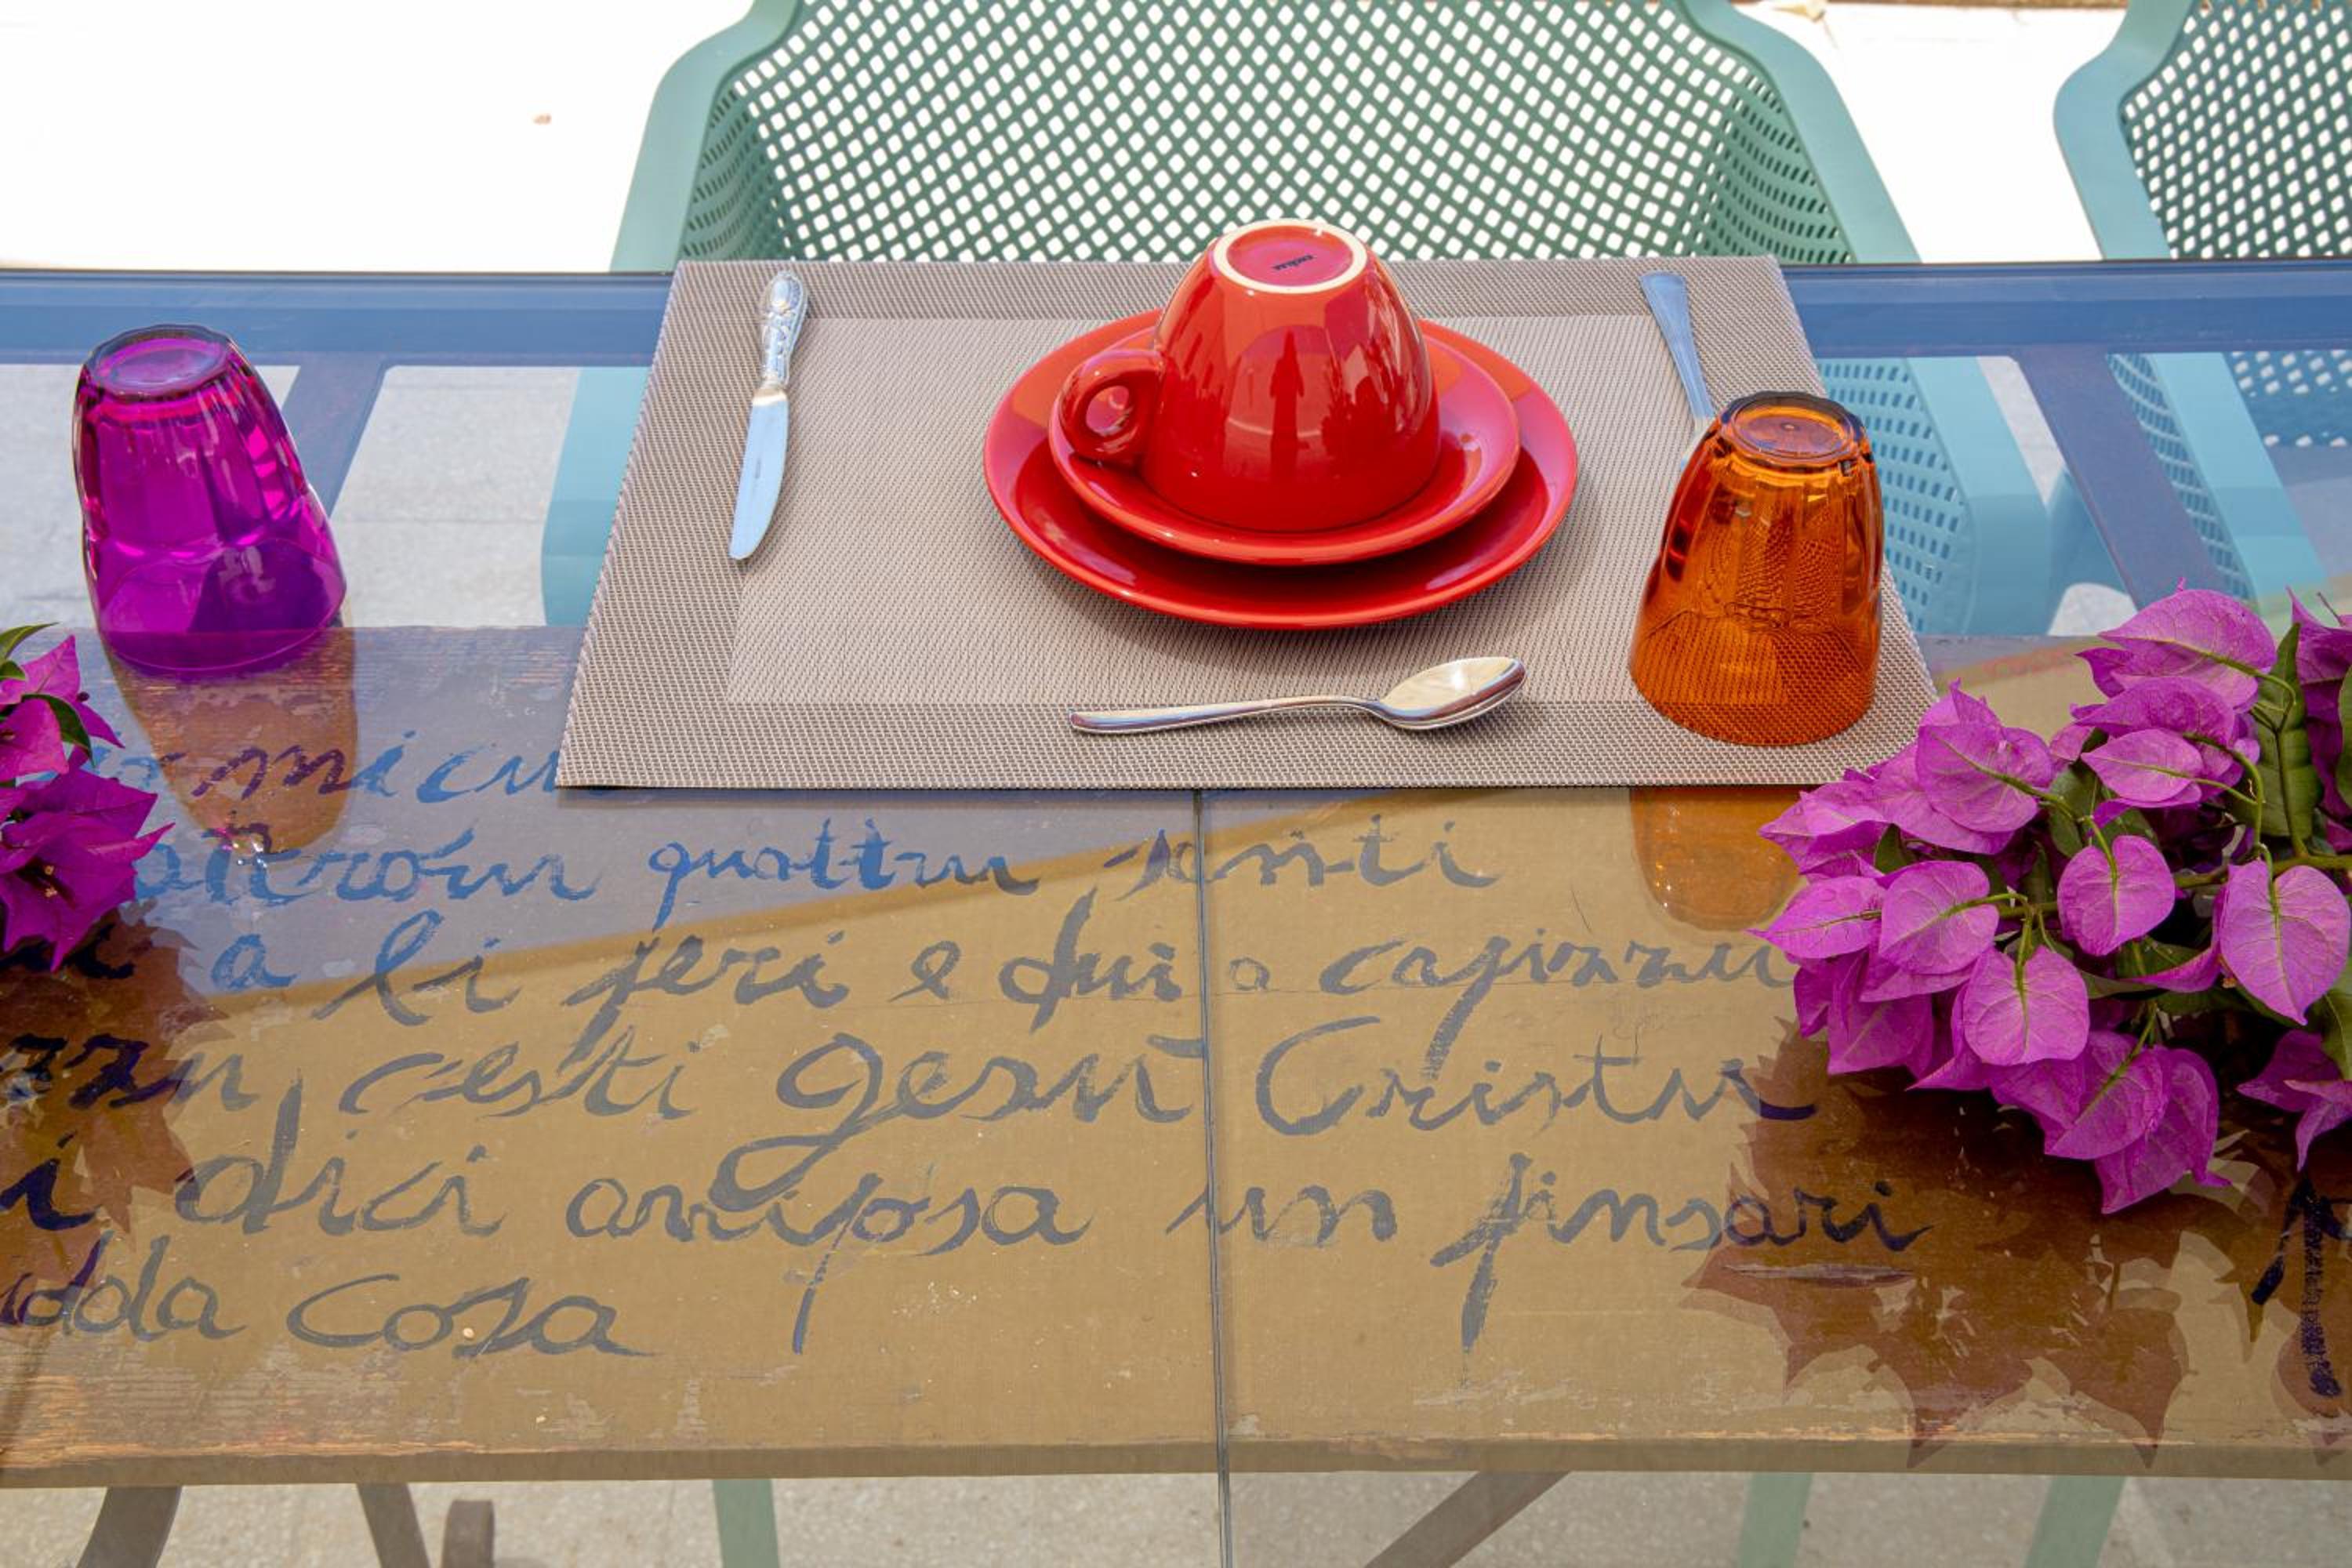 mi cu
trovu quattru santi
a li peri e dui a capizzu
zzu cesti gesù Cristu
i dici arriposa un pinsari
udda cosa